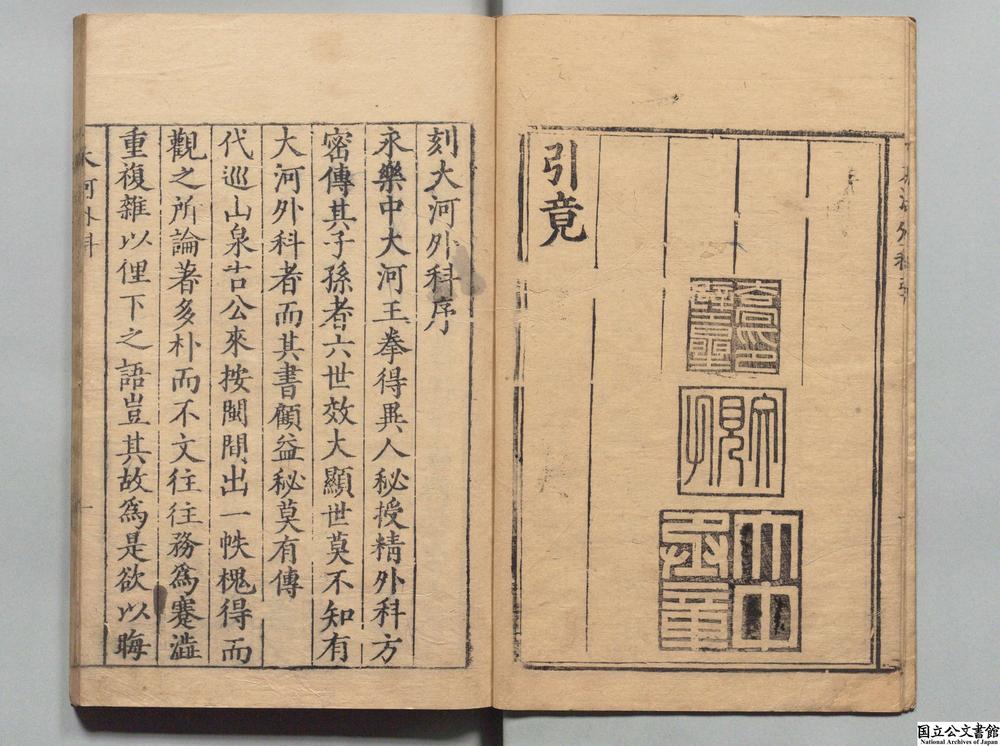 引竟
刻大河外科序
永樂中大河王拳得異人秘授精外科方
密傳其子孫者六世效大顯世莫不知有
大河外科者而其書顧益秘莫有傳
代巡山泉吉公來按閩間出一帙槐得而
觀之所論著多朴而不文往往務爲蹇澁
重複雜以俚下之語豈其故爲是欲以晦
大河外科
一
国立公文書館
National Archives of Japan